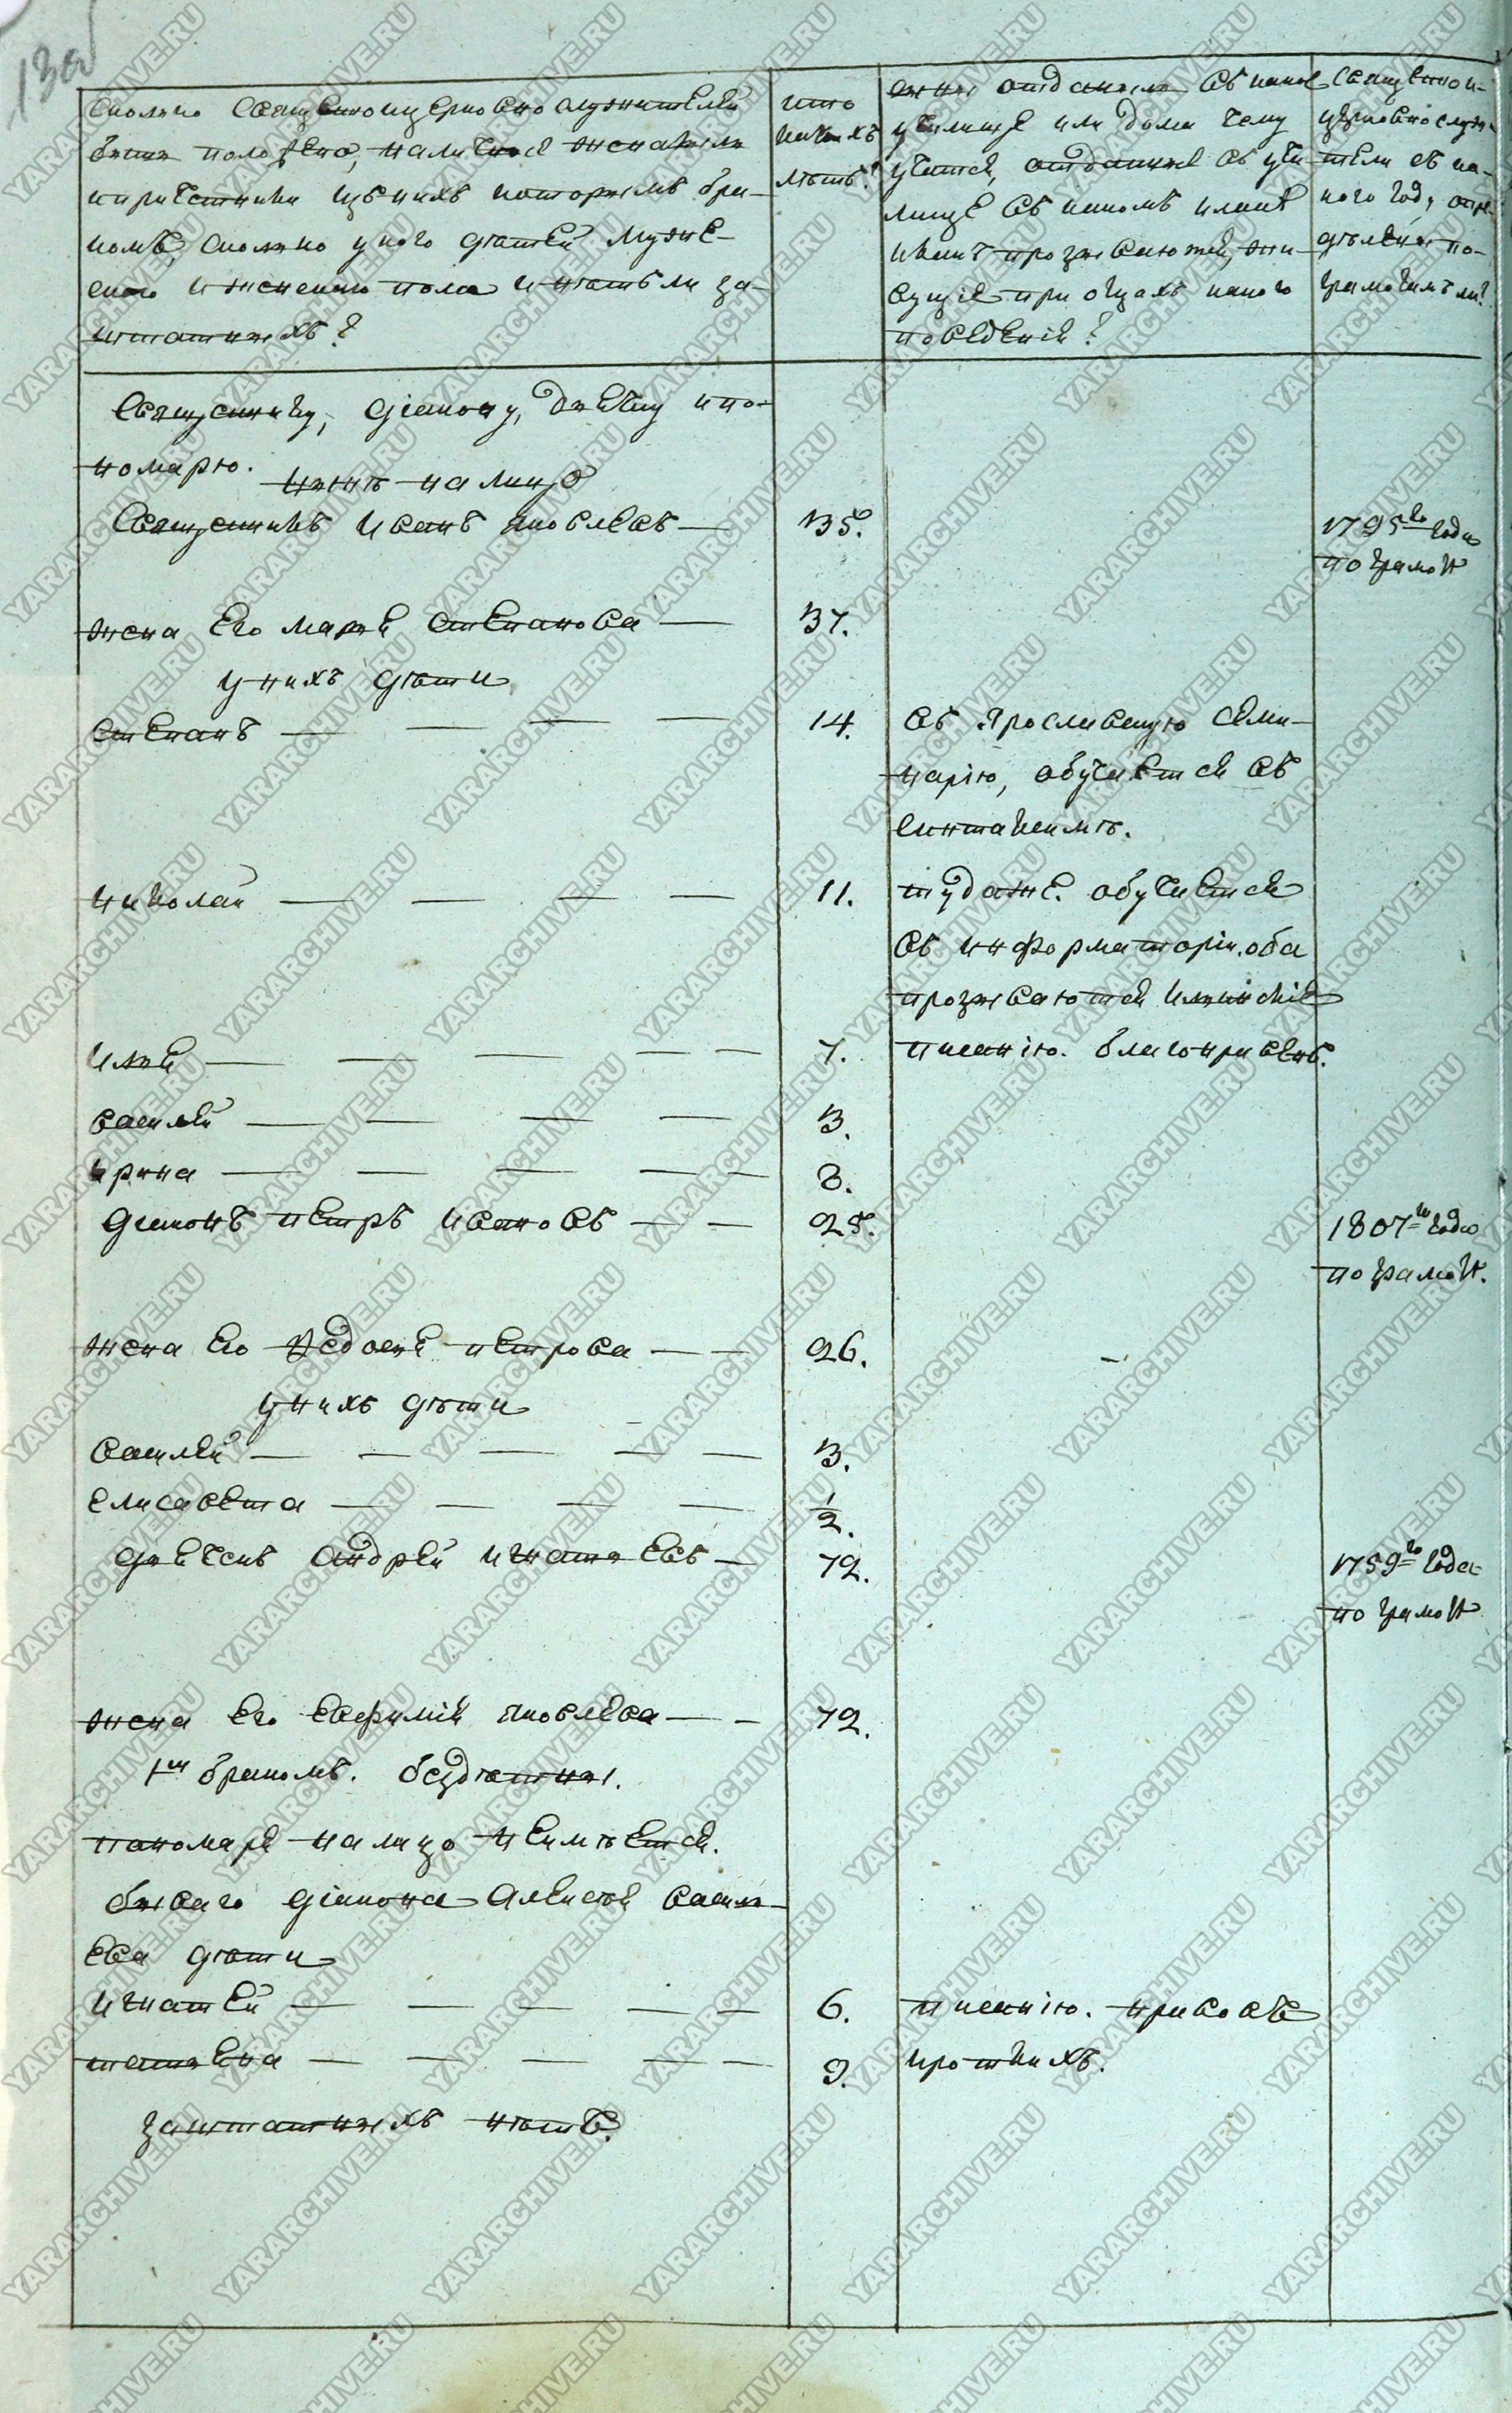 130
сколько священноцерковнослужителей
быть положено, наличные женаты ли
и причетники изъ нихъ которымъ бра-
комъ, сколько у кого дѣтей муже-
ска и женскаго пола и нѣтъ ли за-
штатныхъ?
кто
какихъ
лѣтъ?
отданы въ какое
училище или дома чему
учатся, отданные въ учи-
лище въ какомъ классѣ
и какъ прозываются, жи-
вущіе при отцахъ какого
поведенія?
священно и
церковнослужи-
тели съ ка-
кого году опре-
дѣлены по
грамотамъ ли?
Священнику, діакону, дьячку и по-
номарю.
Нынѣ налицо
Священникъ Иванъ Яковлевъ — 35. 1795го года
по грамотѣ
жена его Марья Степанова — 37.
у нихъ дѣти
Степанъ — — — — 14. въ Ярославскую семи-
нарію, обучается въ
синтаксимѣ.
Николай — — — — 11. туда же. обучается
въ информаторіи. оба
прозываются Ильинскіе
Илья — — — — — 7. писанію. благонравенъ.
Василей — — — — 3.
Ирина — — — — 8.
Діаконъ Петръ Ивановъ — — 25. 1807го года
по грамотѣ.
жена его Федосья Петрова — — 26.
у нихъ дѣти
Василей — — — — — 3.
Елисавета — — — — 1/2.
Дьячекъ Андрей Игнатьевъ — 72. 1759го года
по грамотѣ
жена его Евфимія Яковлева — — 72.
1мъ бракомъ. бездѣтны.
пономаря налицо не имѣется.
бывшаго діакона Алексѣя Василь-
ева дѣти
Игнатей — — — — — 6. писанію. нравовъ
Татьяна — — — — — 9. кроткихъ.
заштатныхъ нѣтъ.
YARARCHIVE.RU